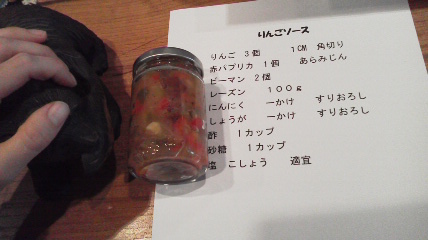 りんごソース
りんご 3個 1CM 角切り
赤パプリカ 1個 あらみじん
ピーマン 2個
レーズン 100g
にんにく 一かけ すりおろし
しょうが 一かけ すりおろし
酢 1カップ
砂糖 1カップ
塩 こしょう 適宜